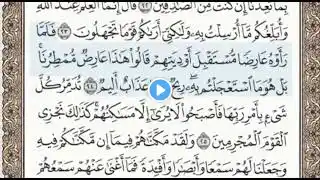 بِمَا تَعِدُنَآ إِن كُنتَ مِنَ ٱلصَّٰدِقِينَ ٢٢ قَالَ إِنَّمَا ٱلْعِلْمُ عِندَ ٱللَّهِ
وَأُبَلِّغُكُم مَّآ أُرْسِلْتُ بِهِۦ وَلَٰكِنِّىٓ أَرَىٰكُمْ قَوْمًا تَجْهَلُونَ ٢٣ فَلَمَّا
رَأَوْهُ عَارِضًا مُّسْتَقْبِلَ أَوْدِيَتِهِمْ قَالُوا۟ هَٰذَا عَارِضٌ مُّمْطِرُنَا ۚ
بَلْ هُوَ مَا ٱسْتَعْجَلْتُم بِهِۦ ۖ رِيحٌ عَذَابٌ أَلِيمٌ ٢٤ تُدَمِّرُ كُلَّ
شَىْءٍۭ بِأَمْرِ رَبِّهَا فَأَصْبَحُوا۟ لَا يُرَىٰٓ إِلَّا مَسَٰكِنُهُمْ ۚ كَذَٰلِكَ نَجْزِى
ٱلْقَوْمَ ٱلْمُجْرِمِينَ ٢٥ وَلَقَدْ مَكَّنَّٰهُمْ فِيمَآ إِن مَّكَّنَّٰكُمْ فِيهِ
وَجَعَلْنَا لَهُمْ سَمْعًا وَأَبْصَٰرًا وَأَفْـِٔدَةً فَمَآ أَغْنَىٰ عَنْهُمْ سَمْعُهُمْ